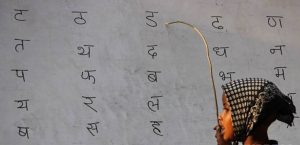 ट ठ ड ढ ण
त थ द ध न
प फ ब भ म
य र ल
ष स ह